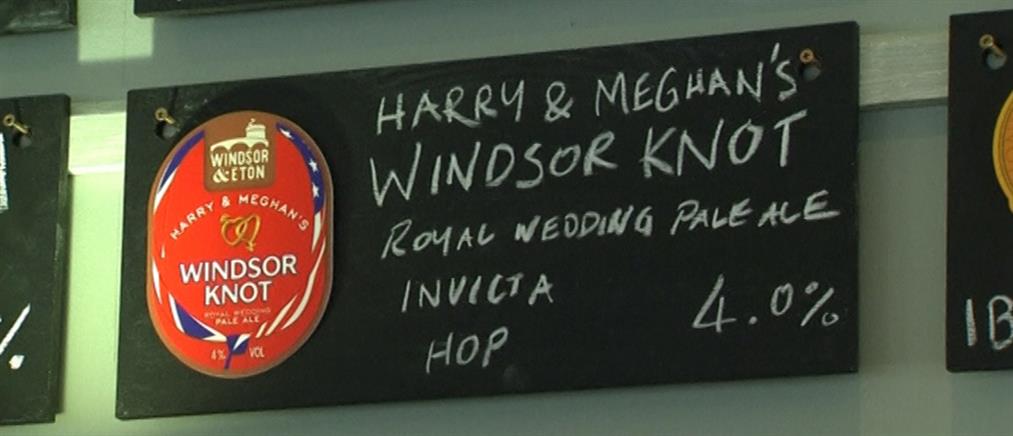 WINDSOR
& ETON
HARRY & MEGHAN'S
WINDSOR
KNOT
ROYAL WEDDING
PALE ALE
4% VOL
HARRY & MEGHAN'S
WINDSOR KNOT
ROYAL WEDDING PALE ALE
INVICTA 4.0%
HOP
%
IB